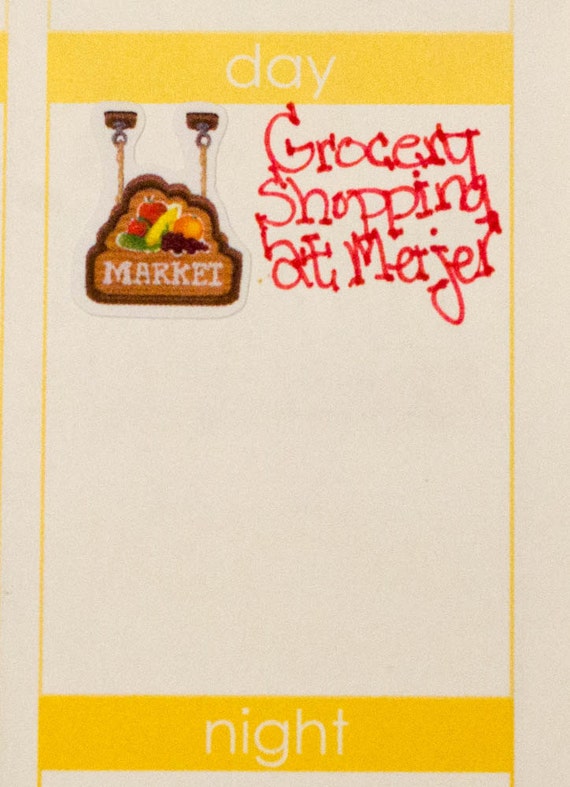 day
MARKET
Grocery
Shopping
at Merjer
night